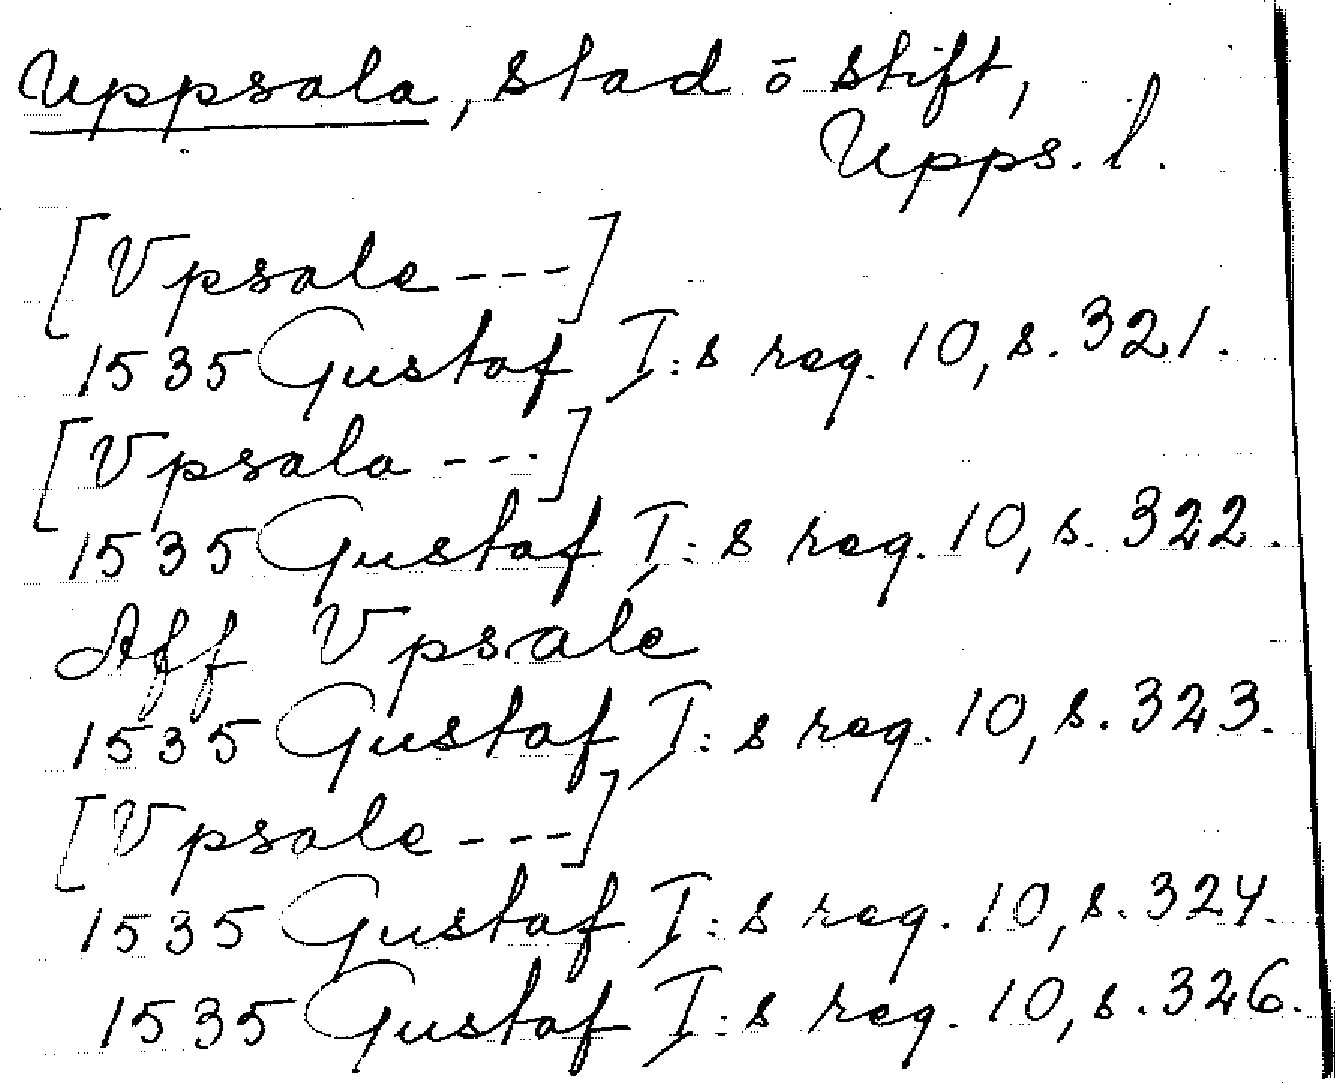 Uppsala, stad o stift,
Upps. l.
[Vpsale---]
1535 Gustaf I:s reg. 10, s. 321.
[Vpsala---]
1535 Gustaf I:s reg. 10, s. 322.
Aff Vpsale
1535 Gustaf I:s reg. 10, s. 323.
[Vpsale---]
1535 Gustaf I:s reg. 10, s. 324.
1535 Gustaf I:s reg. 10, s. 326.